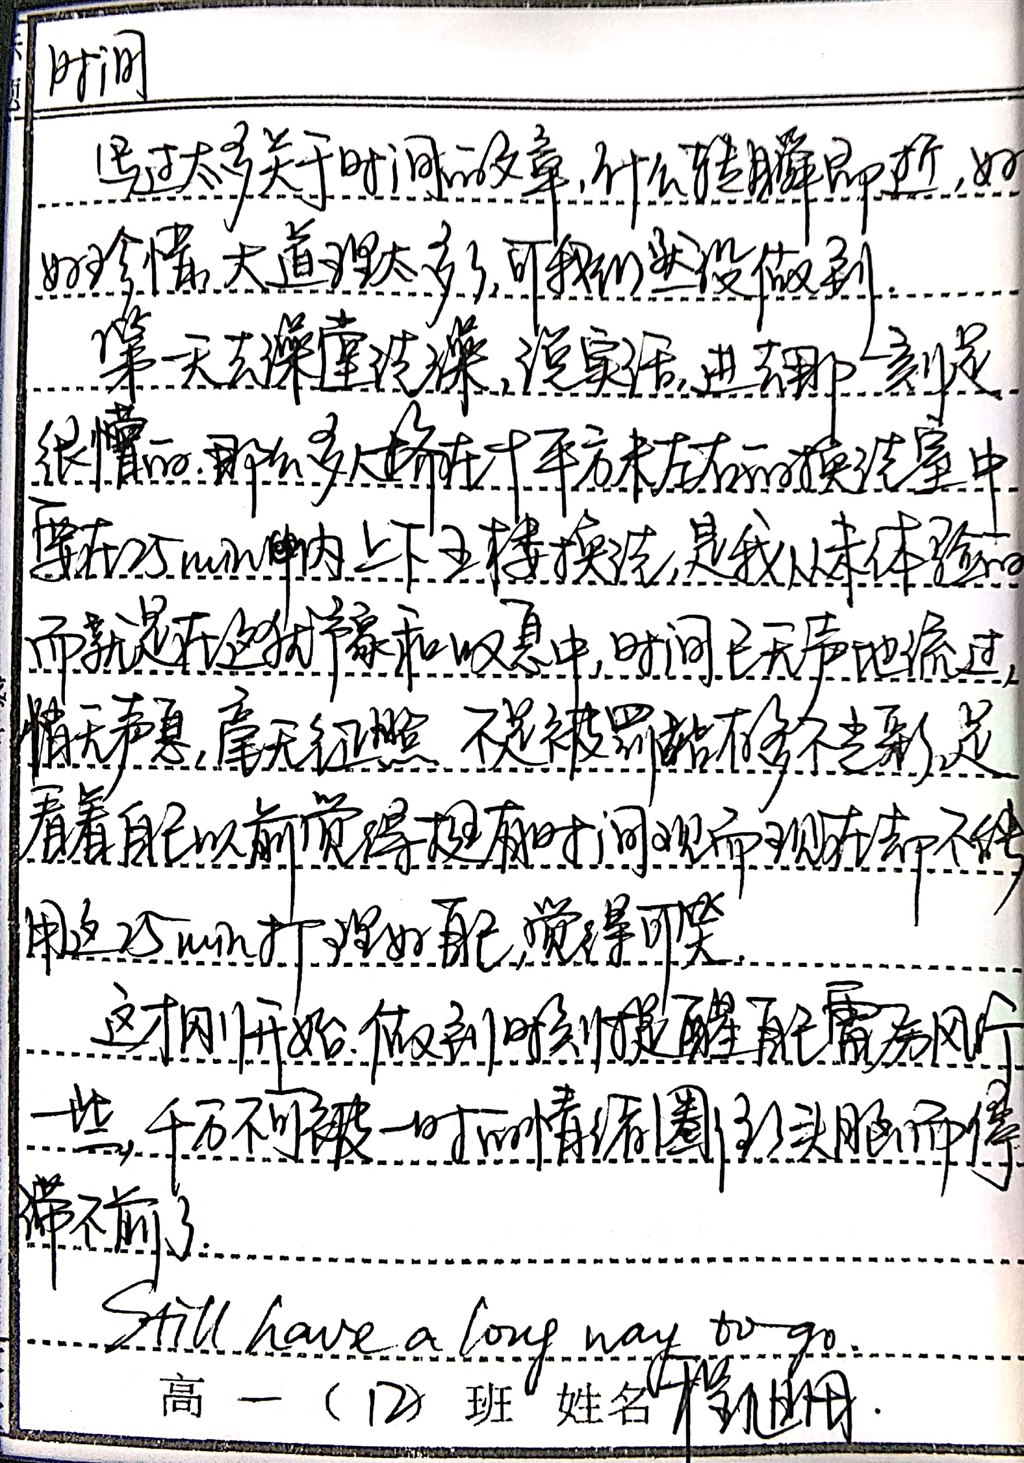 时间
写过太多关于时间的文章,什么转瞬即逝,好
好珍惜,大道理太多了,可我们然没做到.
第一天去澡堂洗澡,说实话,进去那一刻是
很懵的.那么多人挤在十平方米左右的换洗室中
要在25min内上下五楼换洗,是我从未体验的
而就是在这犹豫和叹息中,时间已无声地流过,
悄无声息,毫无征照 不是被罚站有多不光彩,是
看着自己以前觉得挺有时间观而现在却不能
用这25min打理好自己,觉得可笑.
这才刚开始.做到时刻提醒自己雷厉风行
一些,千万不可被一时的情绪圈住了头脑而停
滞不前了.
Still have a long way to go.
高一(12)班 姓名 程